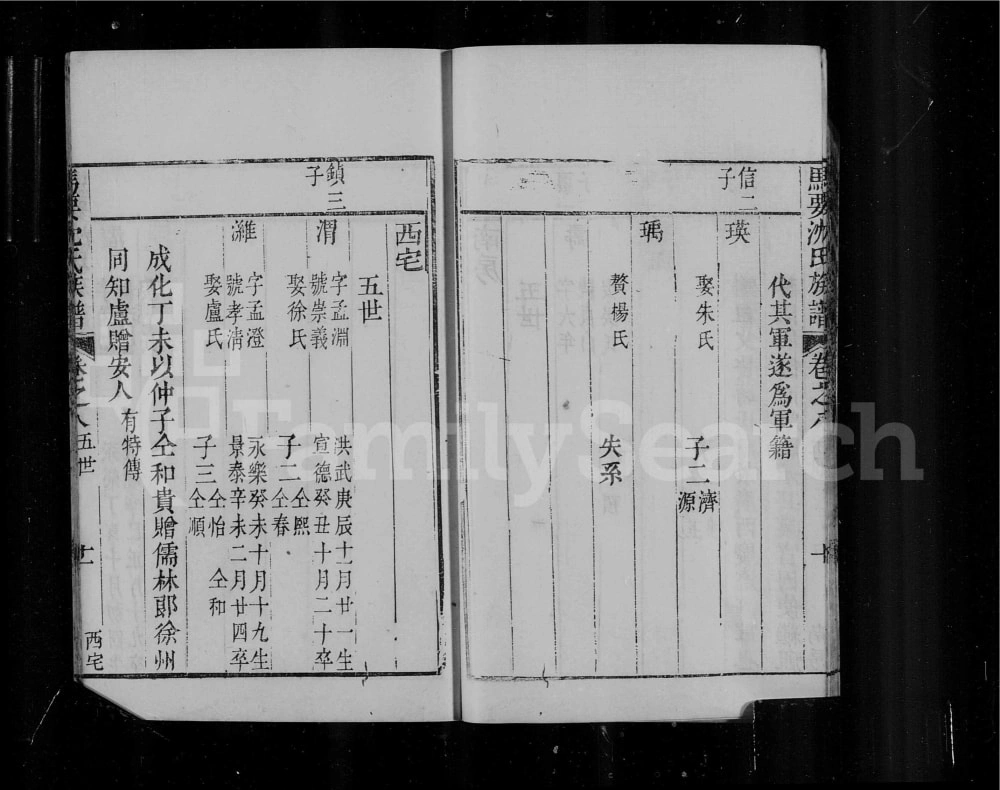 馬要沈氏族譜 卷之八 十
代其軍遂爲軍籍
信二子
瑛 娶朱氏 子二 濟 源
瑀 贅楊氏 失系
西宅
五世
鎮三子
渭 字孟淵 洪武庚辰十一月廿一生
號崇義 宣德癸丑十月二十卒
娶徐氏 子二 仝熙 仝春
濰 字孟澄 永樂癸未十月十九生
號孝清 景泰辛未二月廿四卒
娶盧氏 子三 仝怡 仝和 仝順
成化丁未以仲子仝和貴贈儒林郎徐州
同知盧贈安人 有特傳
馬要沈氏族譜 卷之八 五世 十一 西宅
FamilySearch